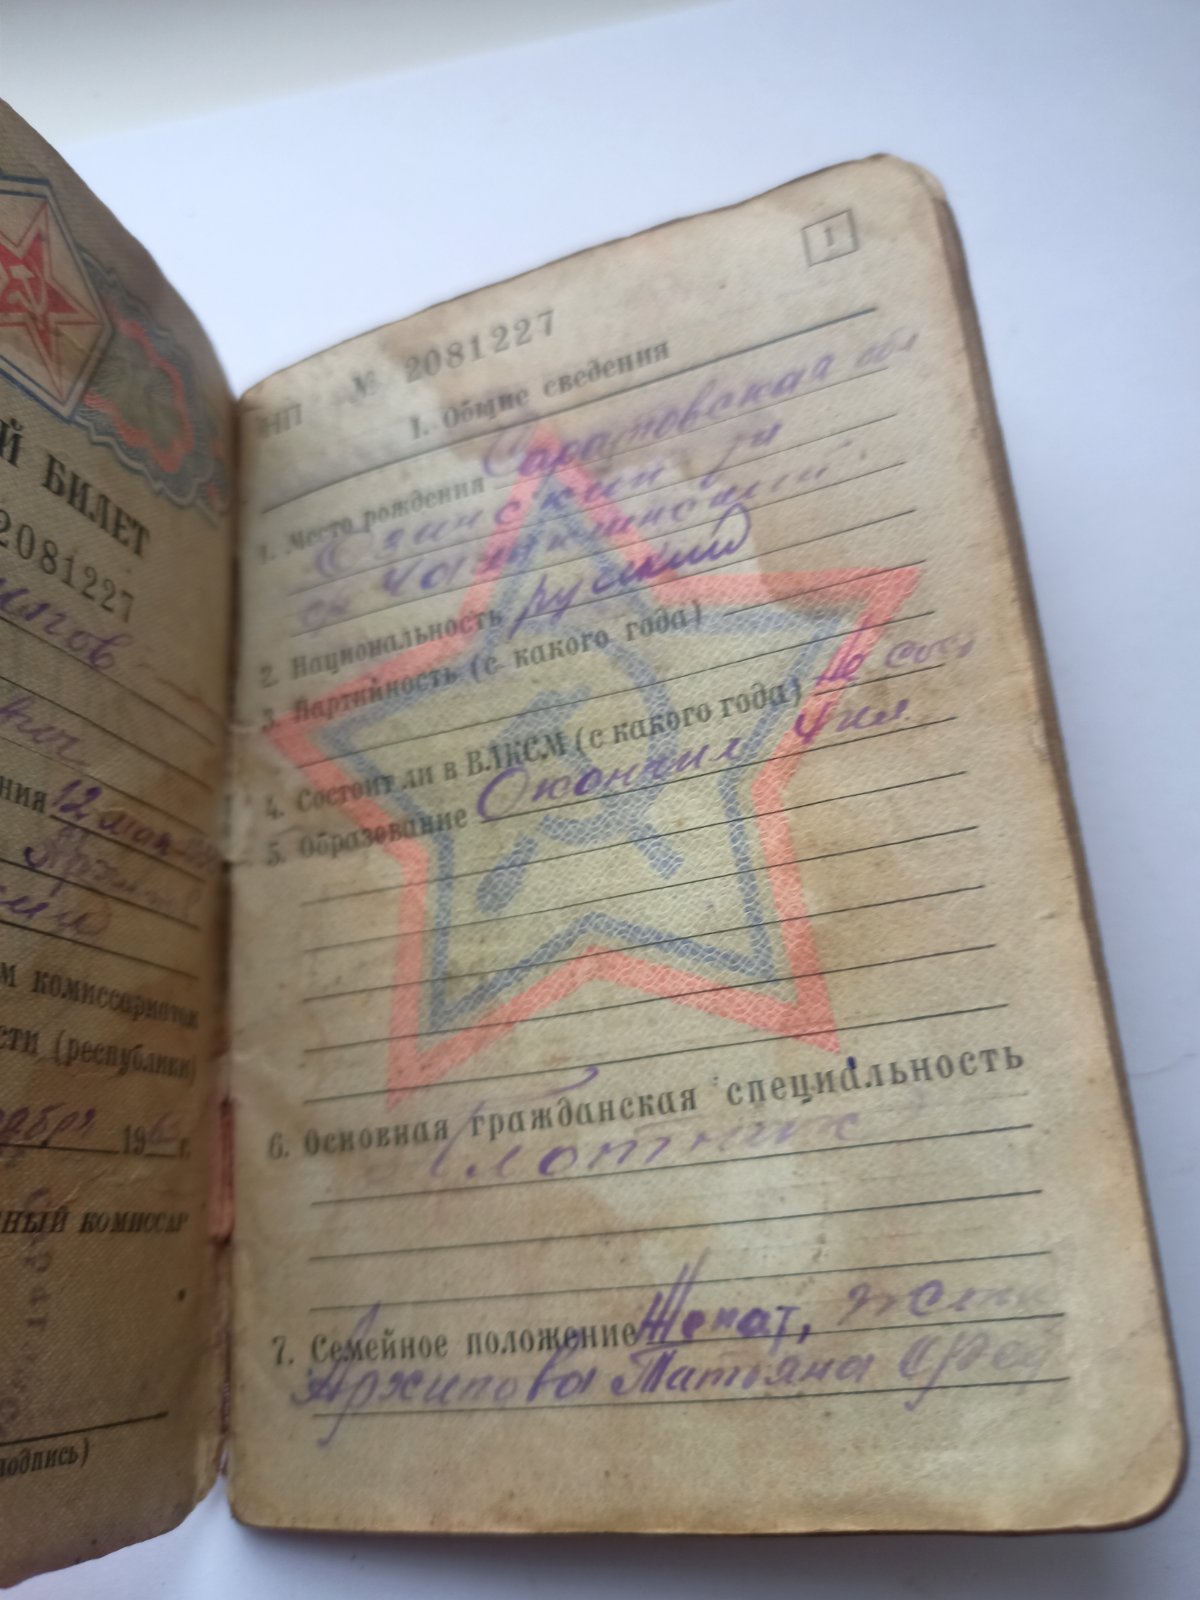 Й БИЛЕТ
2081227
ипов
ния 12 мая
м комиссариатом
сти (республики)
абря 196 г.
ный комиссар
подпись)
1
НП № 2081227
I. Общие сведения
1. Место рождения Саратовская обл
Озинский р-н
2. Национальность русский
3. Партийность (с какого года)
4. Состоит ли в ВЛКСМ (с какого года) Не сост
5. Образование Окончил 4 кл.
6. Основная гражданская специальность
Плотник
7. Семейное положение Женат, жена
Архипова Татьяна Фед